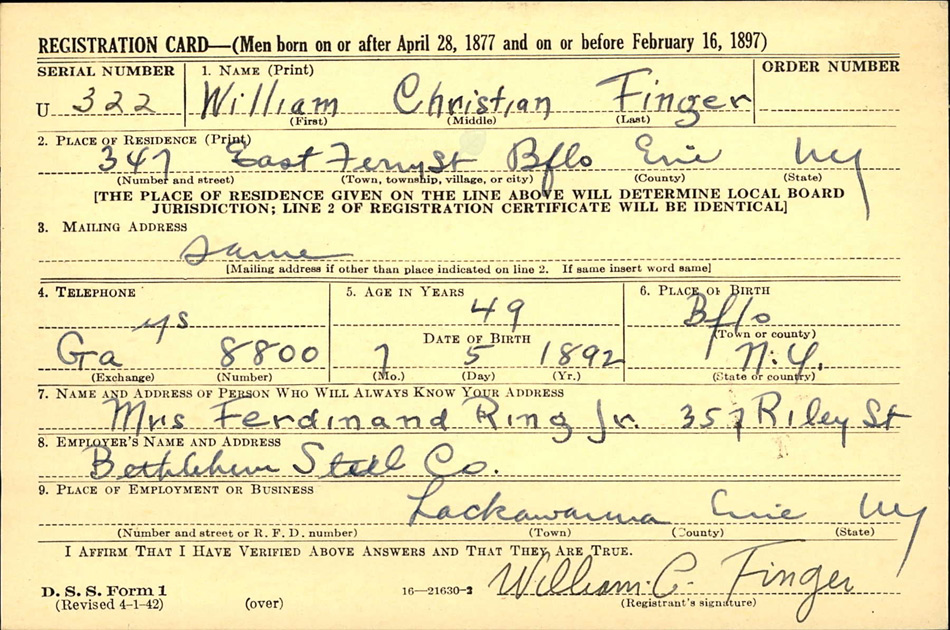 REGISTRATION CARD—(Men born on or after April 28, 1877 and on or before February 16, 1897)
SERIAL NUMBER 1. NAME (Print) ORDER NUMBER
U 322 William Christian Finger
(First) (Middle) (Last)
2. PLACE OF RESIDENCE (Print)
347 East Ferry St Bflo Erie NY
(Number and street) (Town, township, village, or city) (County) (State)
[THE PLACE OF RESIDENCE GIVEN ON THE LINE ABOVE WILL DETERMINE LOCAL BOARD
JURISDICTION; LINE 2 OF REGISTRATION CERTIFICATE WILL BE IDENTICAL]
3. MAILING ADDRESS
Same
[Mailing address if other than place indicated on line 2. If same insert word same]
4. TELEPHONE 5. AGE IN YEARS 6. PLACE OF BIRTH
49 Bflo
DATE OF BIRTH (Town or county)
Ga 8800 7 5 1892 N.Y.
(Exchange) (Number) (Mo.) (Day) (Yr.) (State or country)
7. NAME AND ADDRESS OF PERSON WHO WILL ALWAYS KNOW YOUR ADDRESS
Mrs Ferdinand Ring Jr. 357 Riley St
8. EMPLOYER'S NAME AND ADDRESS
Bethlehem Steel Co.
9. PLACE OF EMPLOYMENT OR BUSINESS
Lackawanna Erie NY
(Number and street or R. F. D. number) (Town) (County) (State)
I AFFIRM THAT I HAVE VERIFIED ABOVE ANSWERS AND THAT THEY ARE TRUE.
D. S. S. Form 1 16—21630-2 William C. Finger
(Revised 4-1-42) (over) (Registrant's signature)